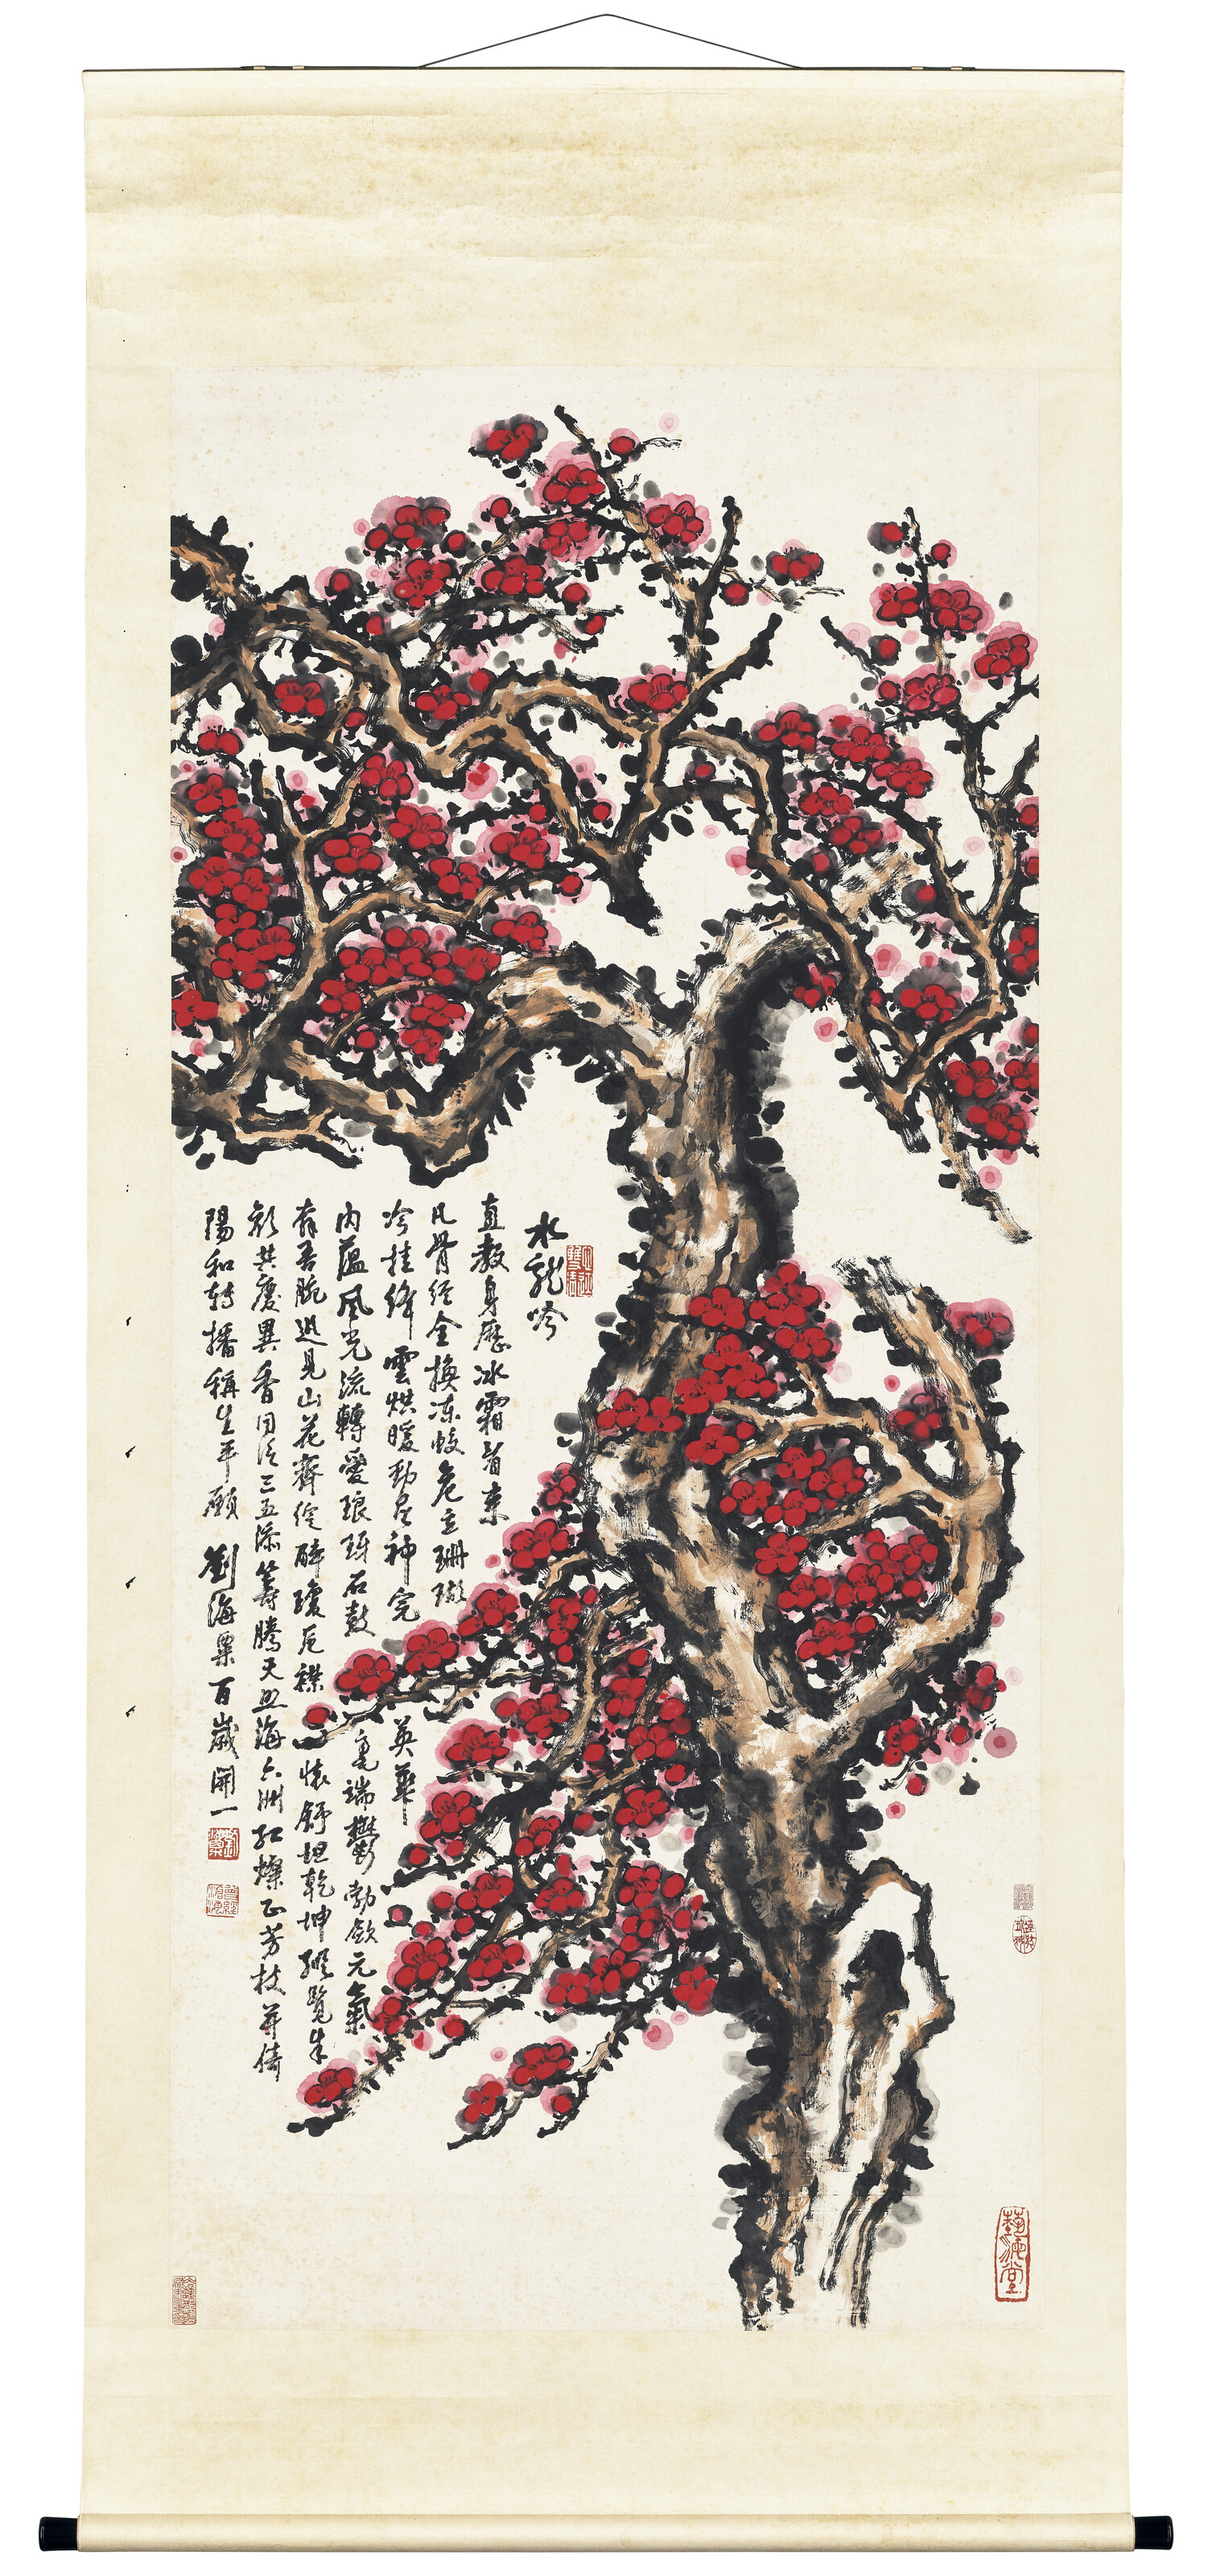 水龍吟
直教身歷冰霜看來
凡骨經全換凍蛟危立珊瑚
冷挂絳雲烘暖勁足神完英華
內蘊風光流轉愛琅玡石鼓毫端鬱勃歛元氣
奔吾腕迅見山花齊綻醉瓊卮襟懷舒坦乾坤縱覽朱
顏共慶異香同泛三五添籌騰天照海六洲紅燦正芳枝並倚
陽和轉播稱生平願劉海粟百歲開一
藝海堂